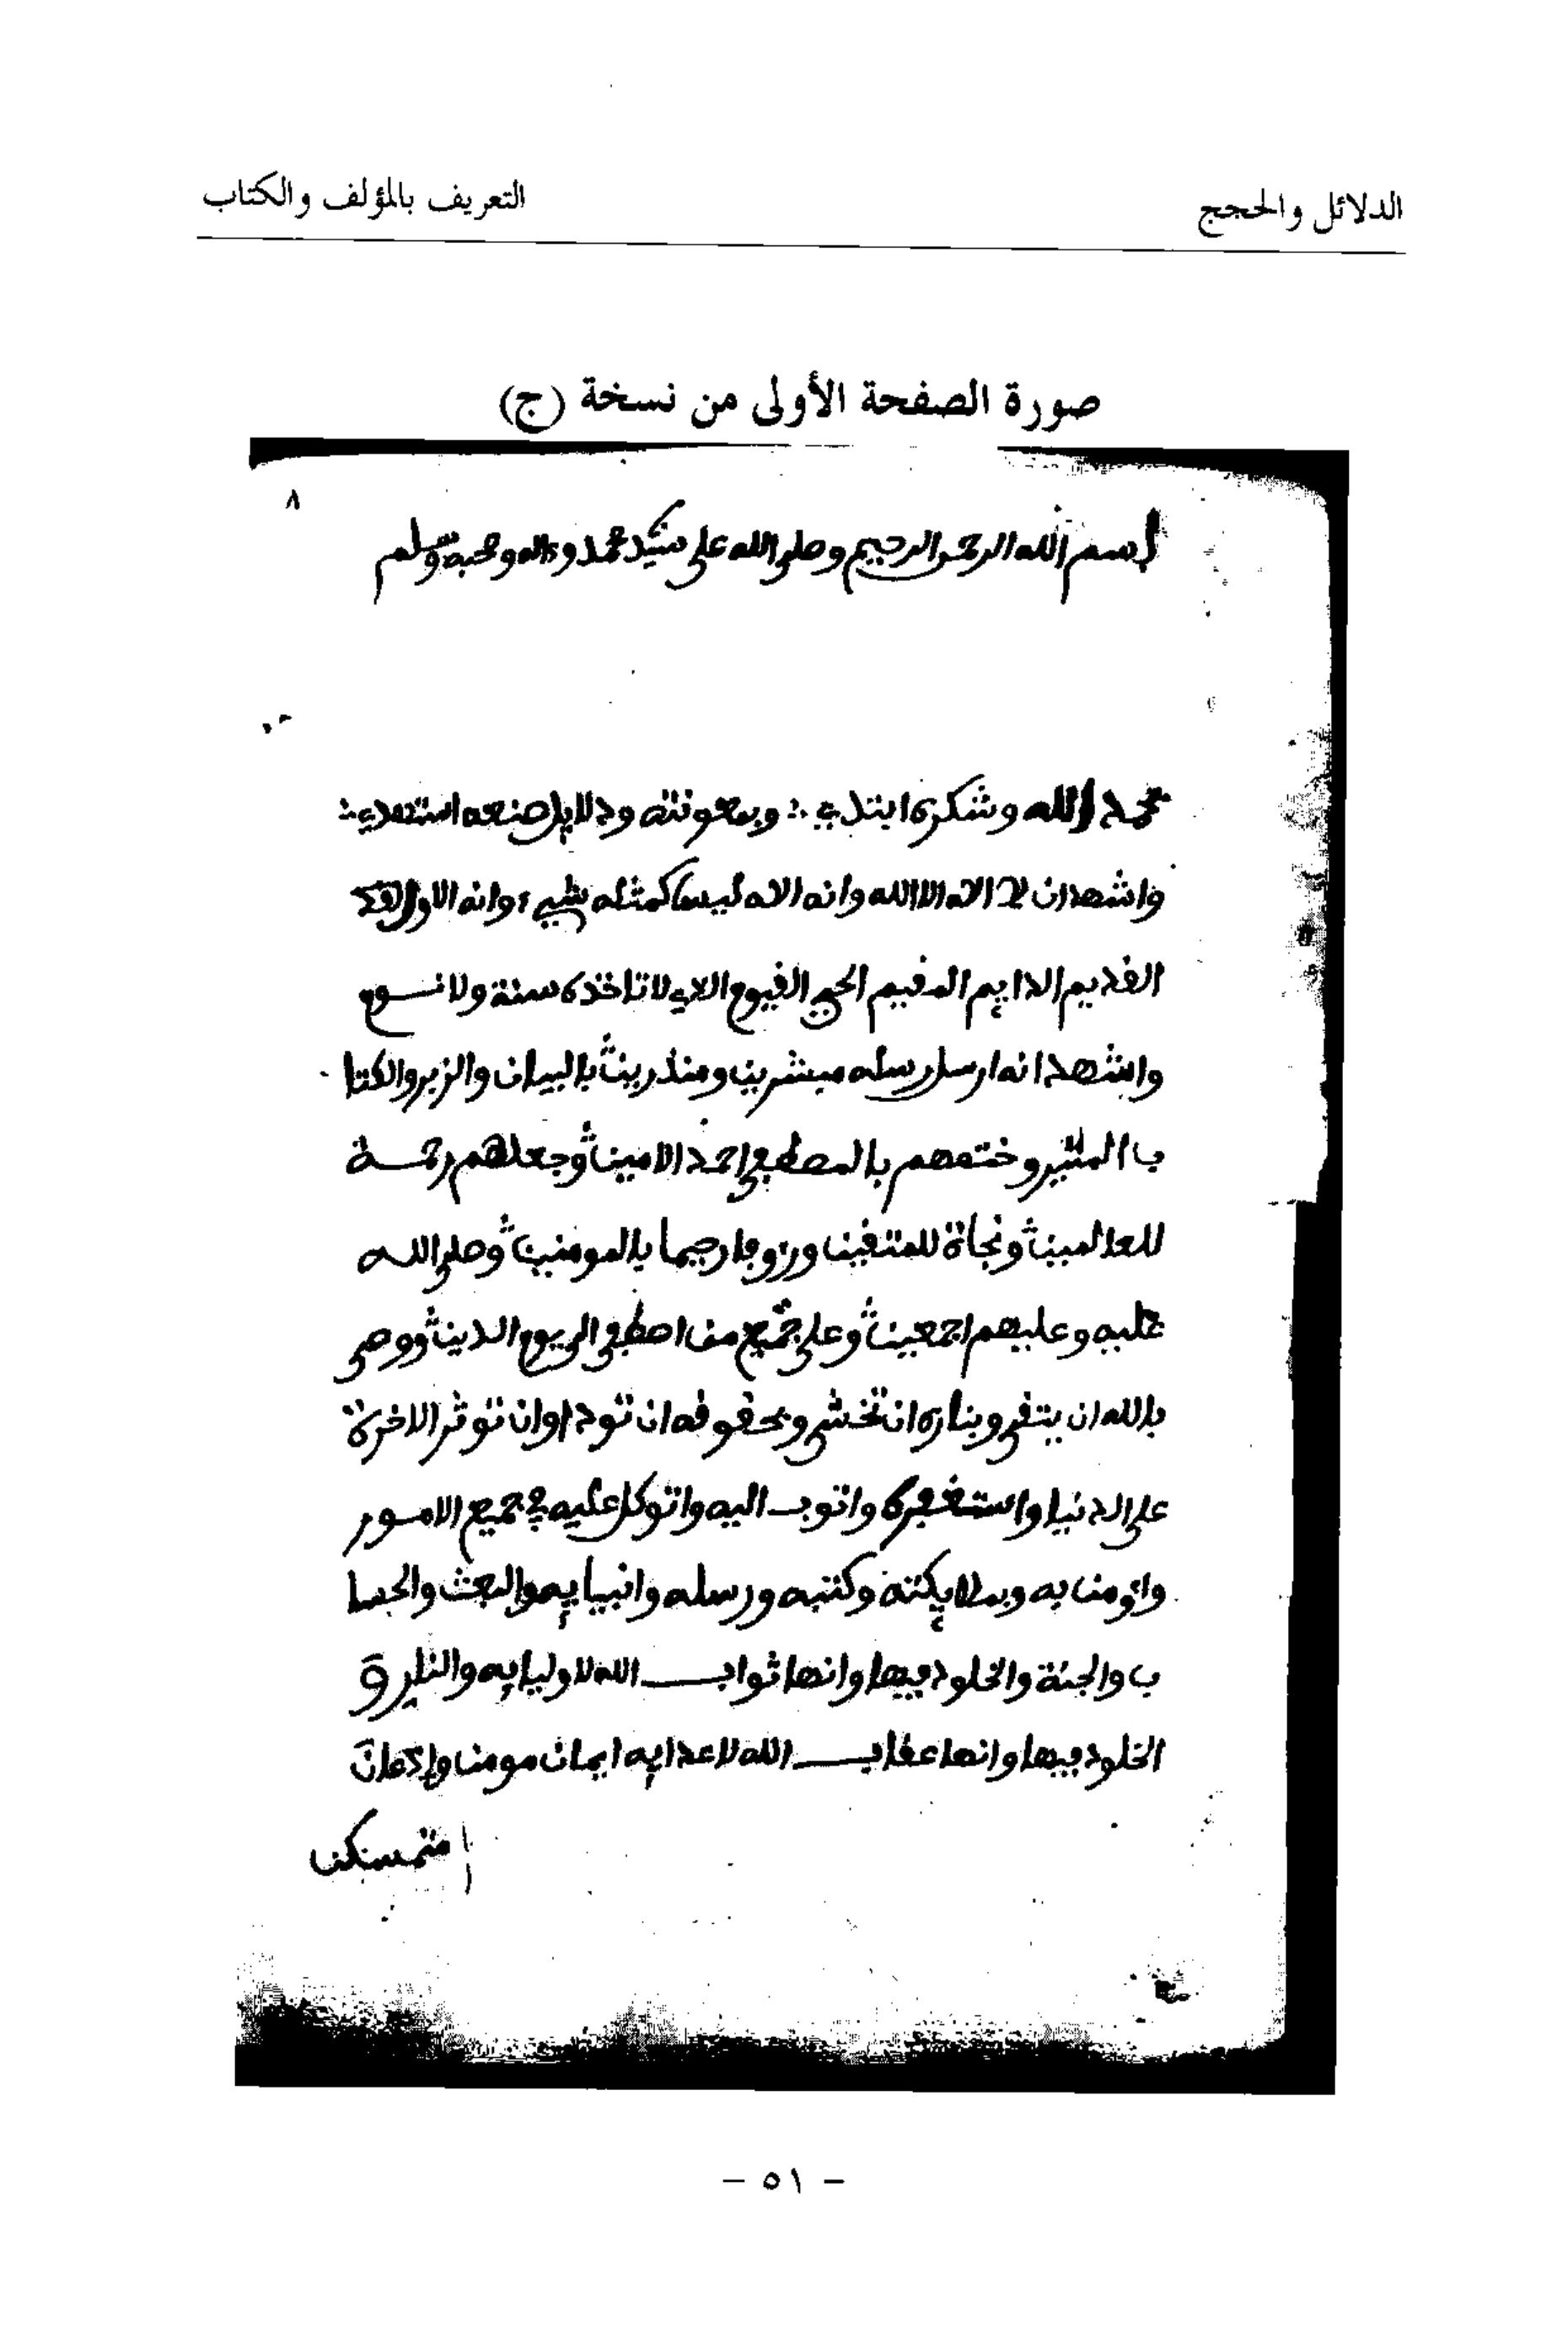 الدلائل والحجج
التعريف بالمؤلف والكتاب
صورة الصفحة الأولى من نسخة (ج)
٨
بسم الله الرحمن الرحيم وصلى الله على سيد محمد وءاله وصحبه وسلم
بحمد الله وشكره ابتدي وبمعونته ودلايل صنعه استهدي
واشهد ان لا اله الا الله وانه الاه ليس كمثله شيء وانه الاول
القديم الدايم المقيم الحي القيوم الذي لا تاخذه سنة ولا نوم
واشهد انه ارسل رسله مبشرين ومنذرين بالبيان والزبر والكتا
ب المنير وختمهم بالمصطفى احمد الامين وجعلهم رحمة
للعالمين ونجاة للمتقين ورءوفا رحيما بالمومنين وصلى الله
عليه وعليهم اجمعين وعلى جميع من اصطفى الى يوم الدين ووصى
بالله ان يتقى وبناره ان تخشى وبحقوقه ان تودا وان توثر الاخرة
على الدنيا واستغفره واتوب اليه واتوكل عليه في جميع الامور
واومن به وبملايكته وكتبه ورسله وانبيايه والبعث والحسا
ب والجنة والخلود فيها وانها ثواب الله لاوليايه والنار و
الخلود فيها وانها عقاب الله لاعدايه ايمان مومن واذعان
متمسكن
- ٥١ -